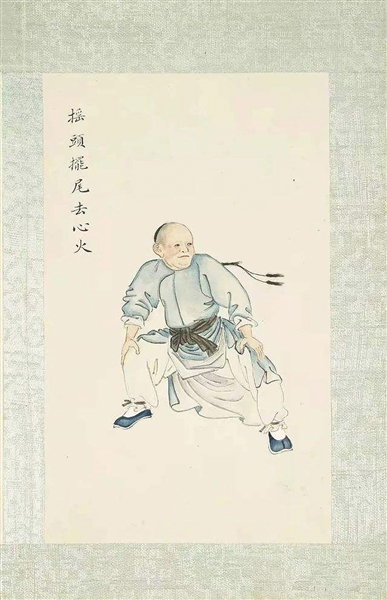 搖頭擺尾去心火